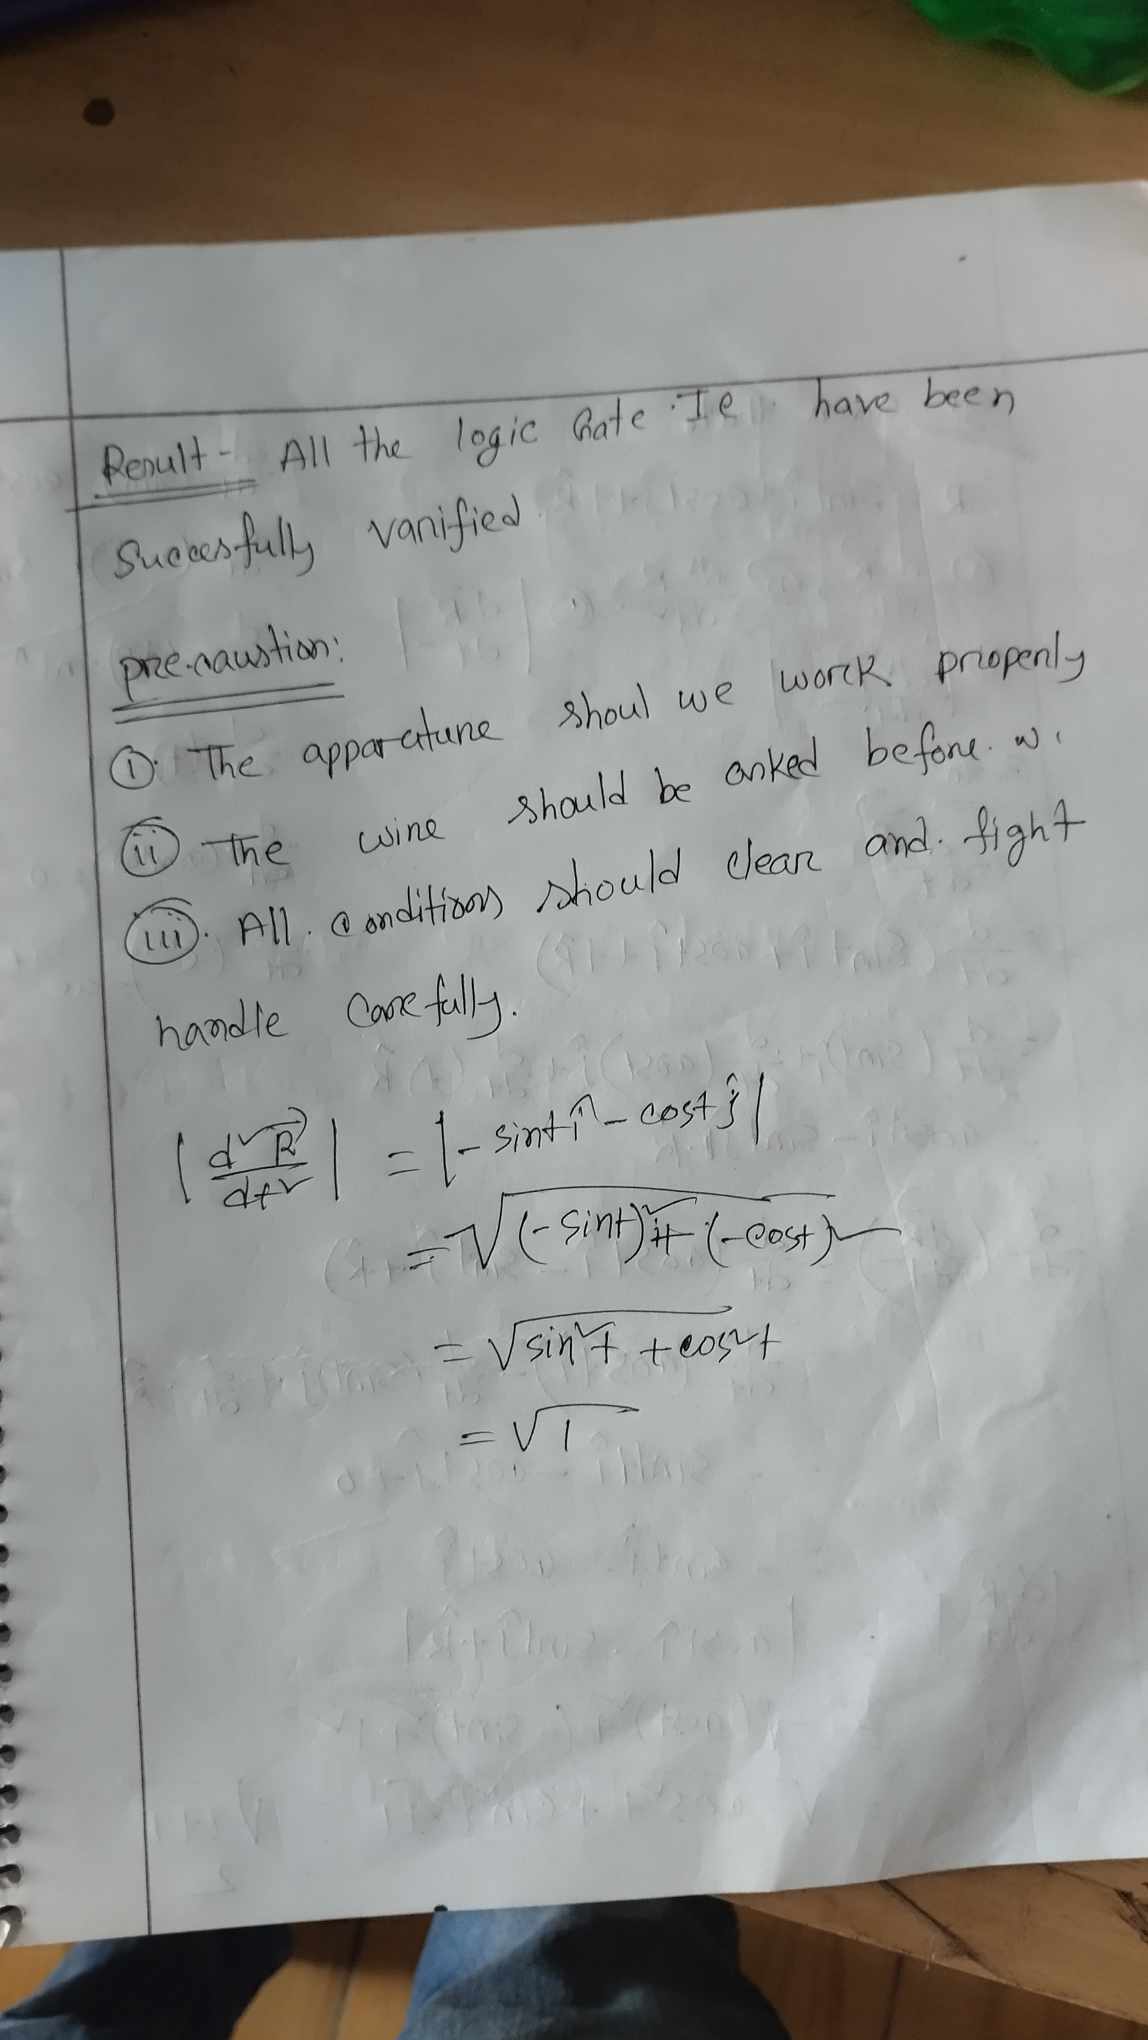 Result - All the logic Gate Ic have been
Succesfully varified
pre.caustion:
(i). The apparatune shoul we work properly
(ii) The wire should be asked before. wi
(iii). All. conditions should clear and. tight
handle carefully.
|d²R⃗/dt²| = |-sint î - cost ĵ|
= √(-sint)² + (-cost)²
= √sin²t + cos²t
= √1